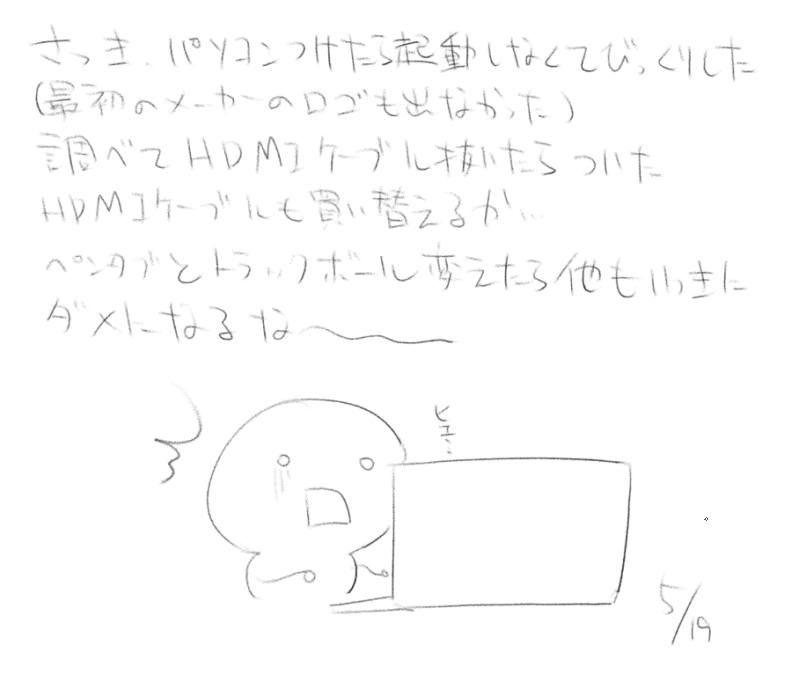 さっき、パソコンつけたら起動しなくてびっくりした
(最初のメーカーのロゴも出なかった)
調べてHDMIケーブル抜いたらついた
HDMIケーブルも買い替えるか…
ペンタブとトラックボール変えたら他もいっきに
ダメになるな〜
ヒュー…
5/19